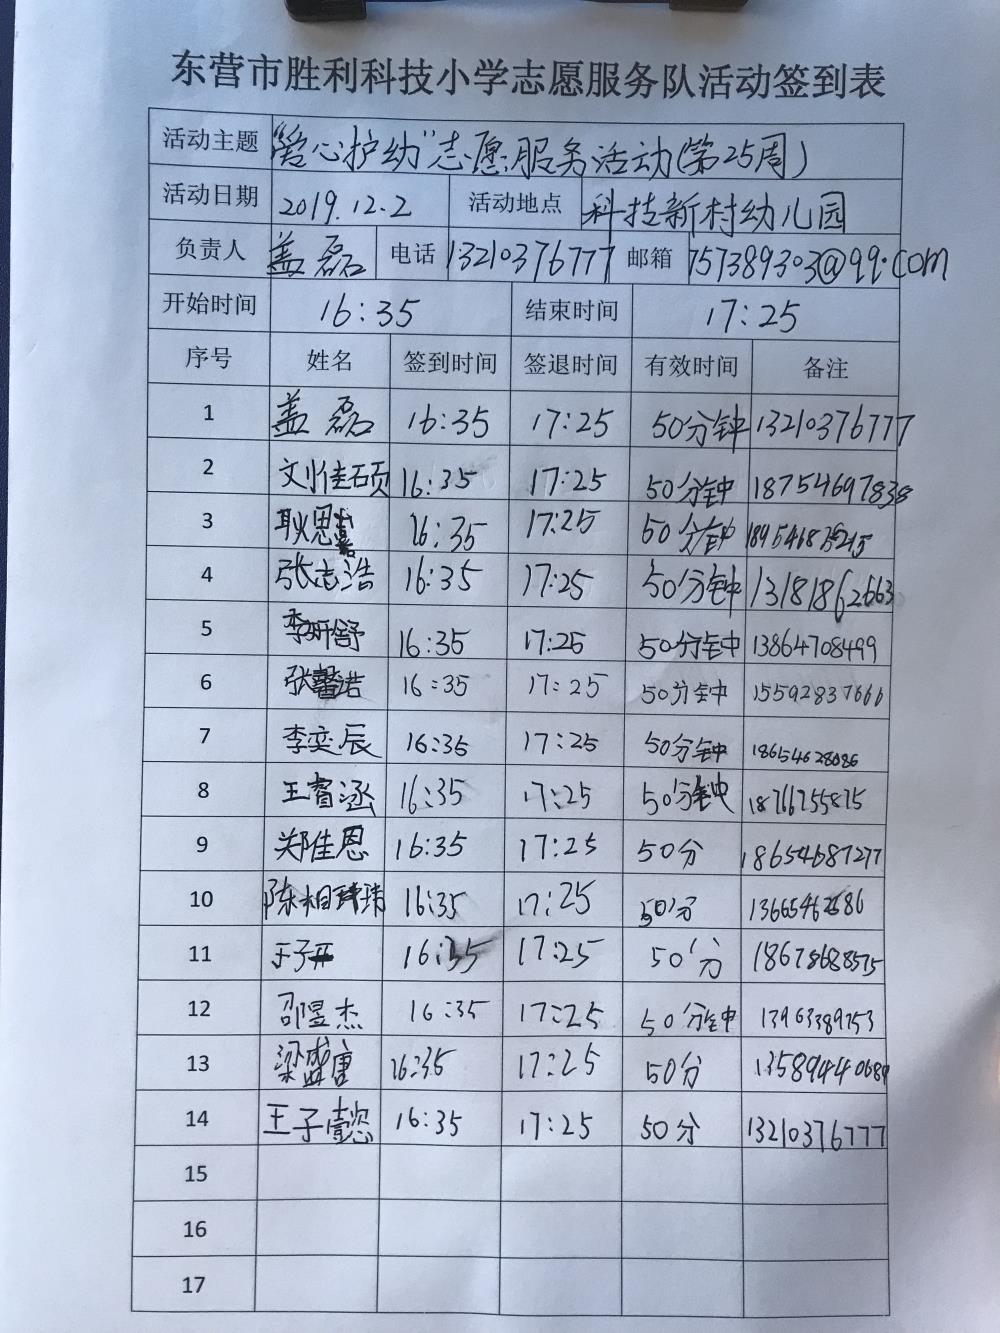 东营市胜利科技小学志愿服务队活动签到表
活动主题 “爱心护幼”志愿服务活动(第25周)
活动日期 2019.12.2 活动地点 科技新村幼儿园
负责人 盖磊 电话 13210376777 邮箱 757389303@qq.com
开始时间 16:35 结束时间 17:25
序号 姓名 签到时间 签退时间 有效时间 备注
1 盖磊 16:35 17:25 50分钟 13210376777
2 刘佳硕 16:35 17:25 50分钟 18754697838
3 耿思嘉 16:35 17:25 50分钟
4 张志浩 16:35 17:25 50分钟 13181862663
5 李妍舒 16:35 17:25 50分钟 13864708499
6 张馨诺 16:35 17:25 50分钟 15592837666
7 李奕辰 16:35 17:25 50分钟 18654628086
8 王睿涵 16:35 17:25 50分钟 18766755875
9 郑佳恩 16:35 17:25 50分 18654687277
10 陈相玮 16:35 17:25 50分
11 王子 16:35 17:25 50分 18678688575
12 邵昱杰 16:35 17:25 50分钟 13963389753
13 梁盛唐 16:35 17:25 50分
14 王子懿 16:35 17:25 50分 13210376777
15
16
17